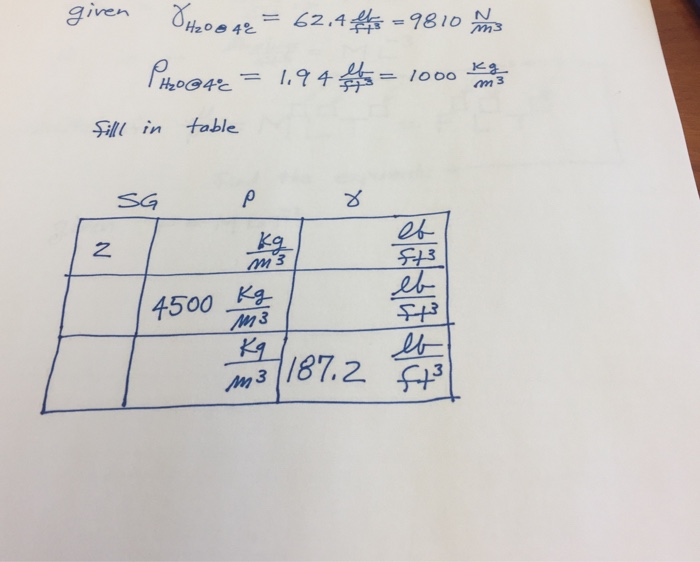 given γH2O@4°C = 62.4 lb/ft3 = 9810 N/m3
ρH2O@4°C = 1.94 lb/ft3 = 1000 Kg/m3
fill in table
SG ρ γ
2 Kg/m3 lb/ft3
4500 Kg/m3 lb/ft3
Kg/m3 187.2 lb/ft3